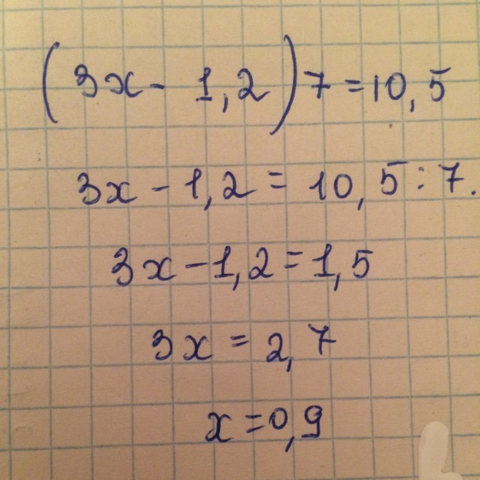 (3x - 1,2)7 = 10,5
3x - 1,2 = 10,5 : 7.
3x - 1,2 = 1,5
3x = 2,7
x = 0,9